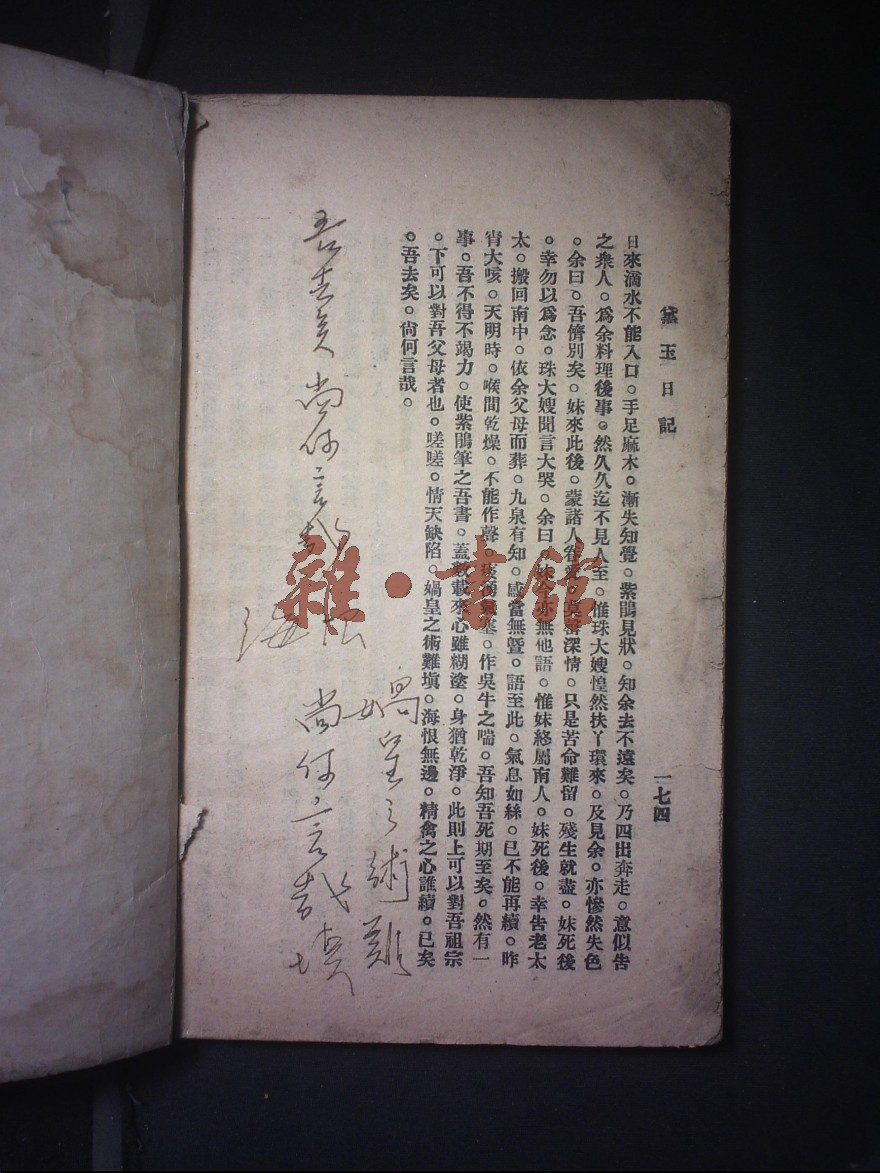 黛玉日記
一七四
日來滴水不能入口。手足麻木。漸失知覺。紫鵑見狀。知余去不遠矣。乃四出奔走。意似告
之衆人。爲余料理後事。然久久迄不見人至。惟珠大嫂惶然扶丫環來。及見余。亦慘然失色
。余曰。吾儕別矣。妹來此後。蒙諸人眷愛。深情。只是苦命難留。殘生就盡。妹死後
。幸勿以爲念。珠大嫂聞言大哭。余曰。妹今亦無他語。惟妹終屬南人。妹死後。幸告老太
太。搬回南中。依余父母而葬。九泉有知。感當無曁。語至此。氣息如絲。已不能再續。昨
宵大咳。天明時。喉間乾燥。不能作聲。痰湧氣塞。作吳牛之喘。吾知吾死期至矣。然有一
事。吾不得不竭力。使紫鵑筆之吾書。蓋數載來心雖糊塗。身猶乾淨。此則上可以對吾祖宗
。下可以對吾父母者也。嗟嗟。情天缺陷。媧皇之術難塡。海恨無邊。精禽之心誰續。已矣
。吾去矣。尙何言哉。
吾去矣 尚何言哉
媧皇之術難
填
尚何言哉
海
雜·書館